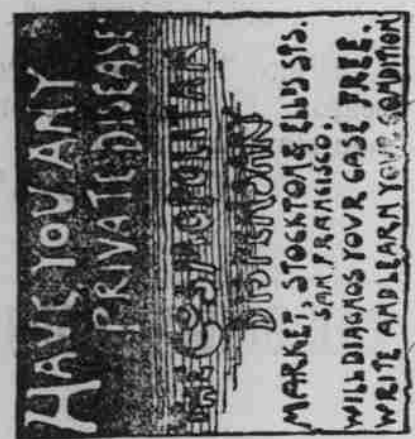 HAVE YOU ANY
PRIVATE DISEASE
THE COSMOPOLITAN
DISPENSARY
MARKET, STOCKTON & ELLIS STS.
SAN FRANCISCO.
WILL DIAGNOS YOUR CASE FREE.
WRITE AND LEARN YOUR CONDITION